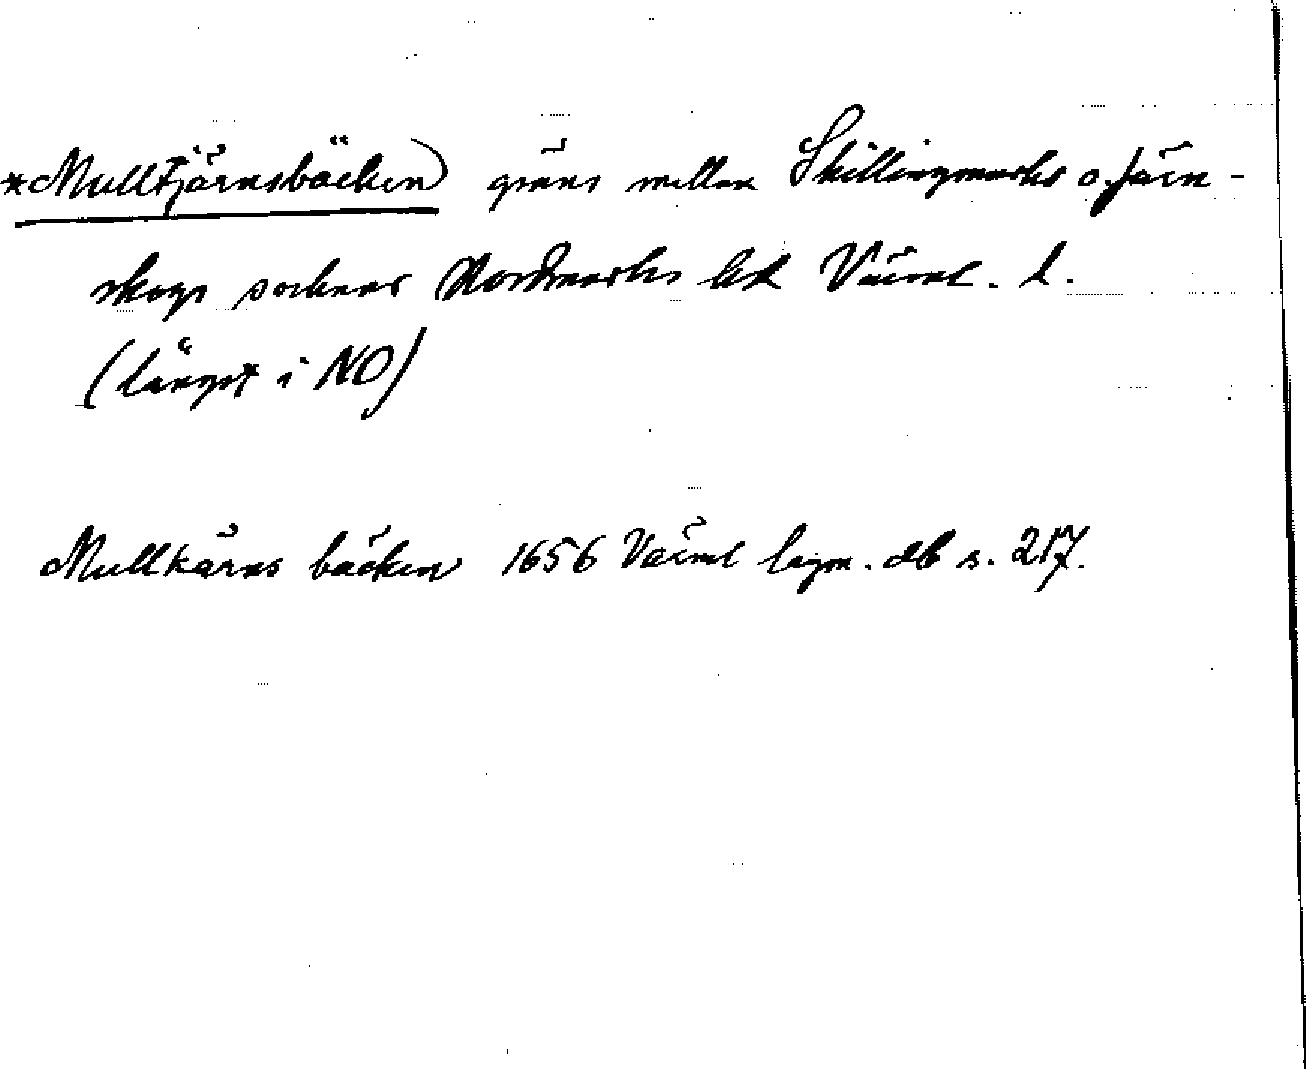 *Mulltjärnsbäcken) gräns mellan Skillingmarks o. Järn-
skogs socknar Nordmarks hd Värml. l.
(längst i NO)
Mullkärns bäcken 1656 Värml lagm. db s. 217.